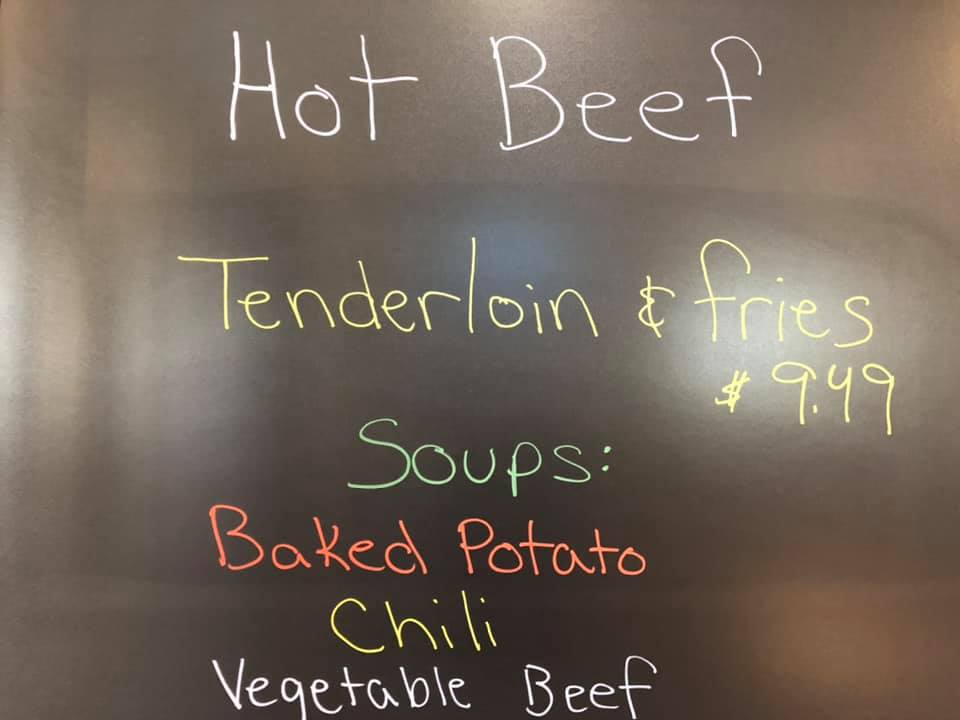 Hot Beef
Tenderloin & fries
$ 9.49
Soups:
Baked Potato
Chili
Vegetable Beef